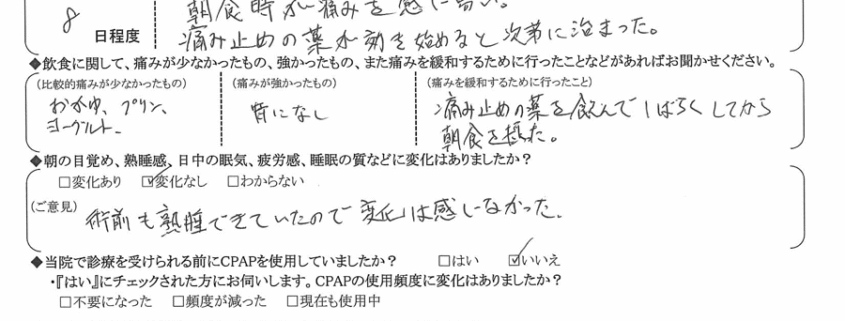 朝食時が痛みを感じ易い。
8
日程度
痛み止めの薬が効き始めると次第に治まった。
◆飲食に関して、痛みが少なかったもの、強かったもの、また痛みを緩和するために行ったことなどがあればお聞かせください。
(比較的痛みが少なかったもの) (痛みが強かったもの) (痛みを緩和するために行ったこと)
おかゆ、プリン、
ヨーグルト、
特になし
痛み止めの薬を飲んでしばらくしてから
朝食を摂った。
◆朝の目覚め、熟睡感、日中の眠気、疲労感、睡眠の質などに変化はありましたか？
□変化あり ☑変化なし □わからない
(ご意見)
術前も熟睡できていたので変化は感じなかった。
◆当院で診療を受けられる前にCPAPを使用していましたか？ □はい ☑いいえ
・『はい』にチェックされた方にお伺いします。CPAPの使用頻度に変化はありましたか？
□不要になった □頻度が減った □現在も使用中